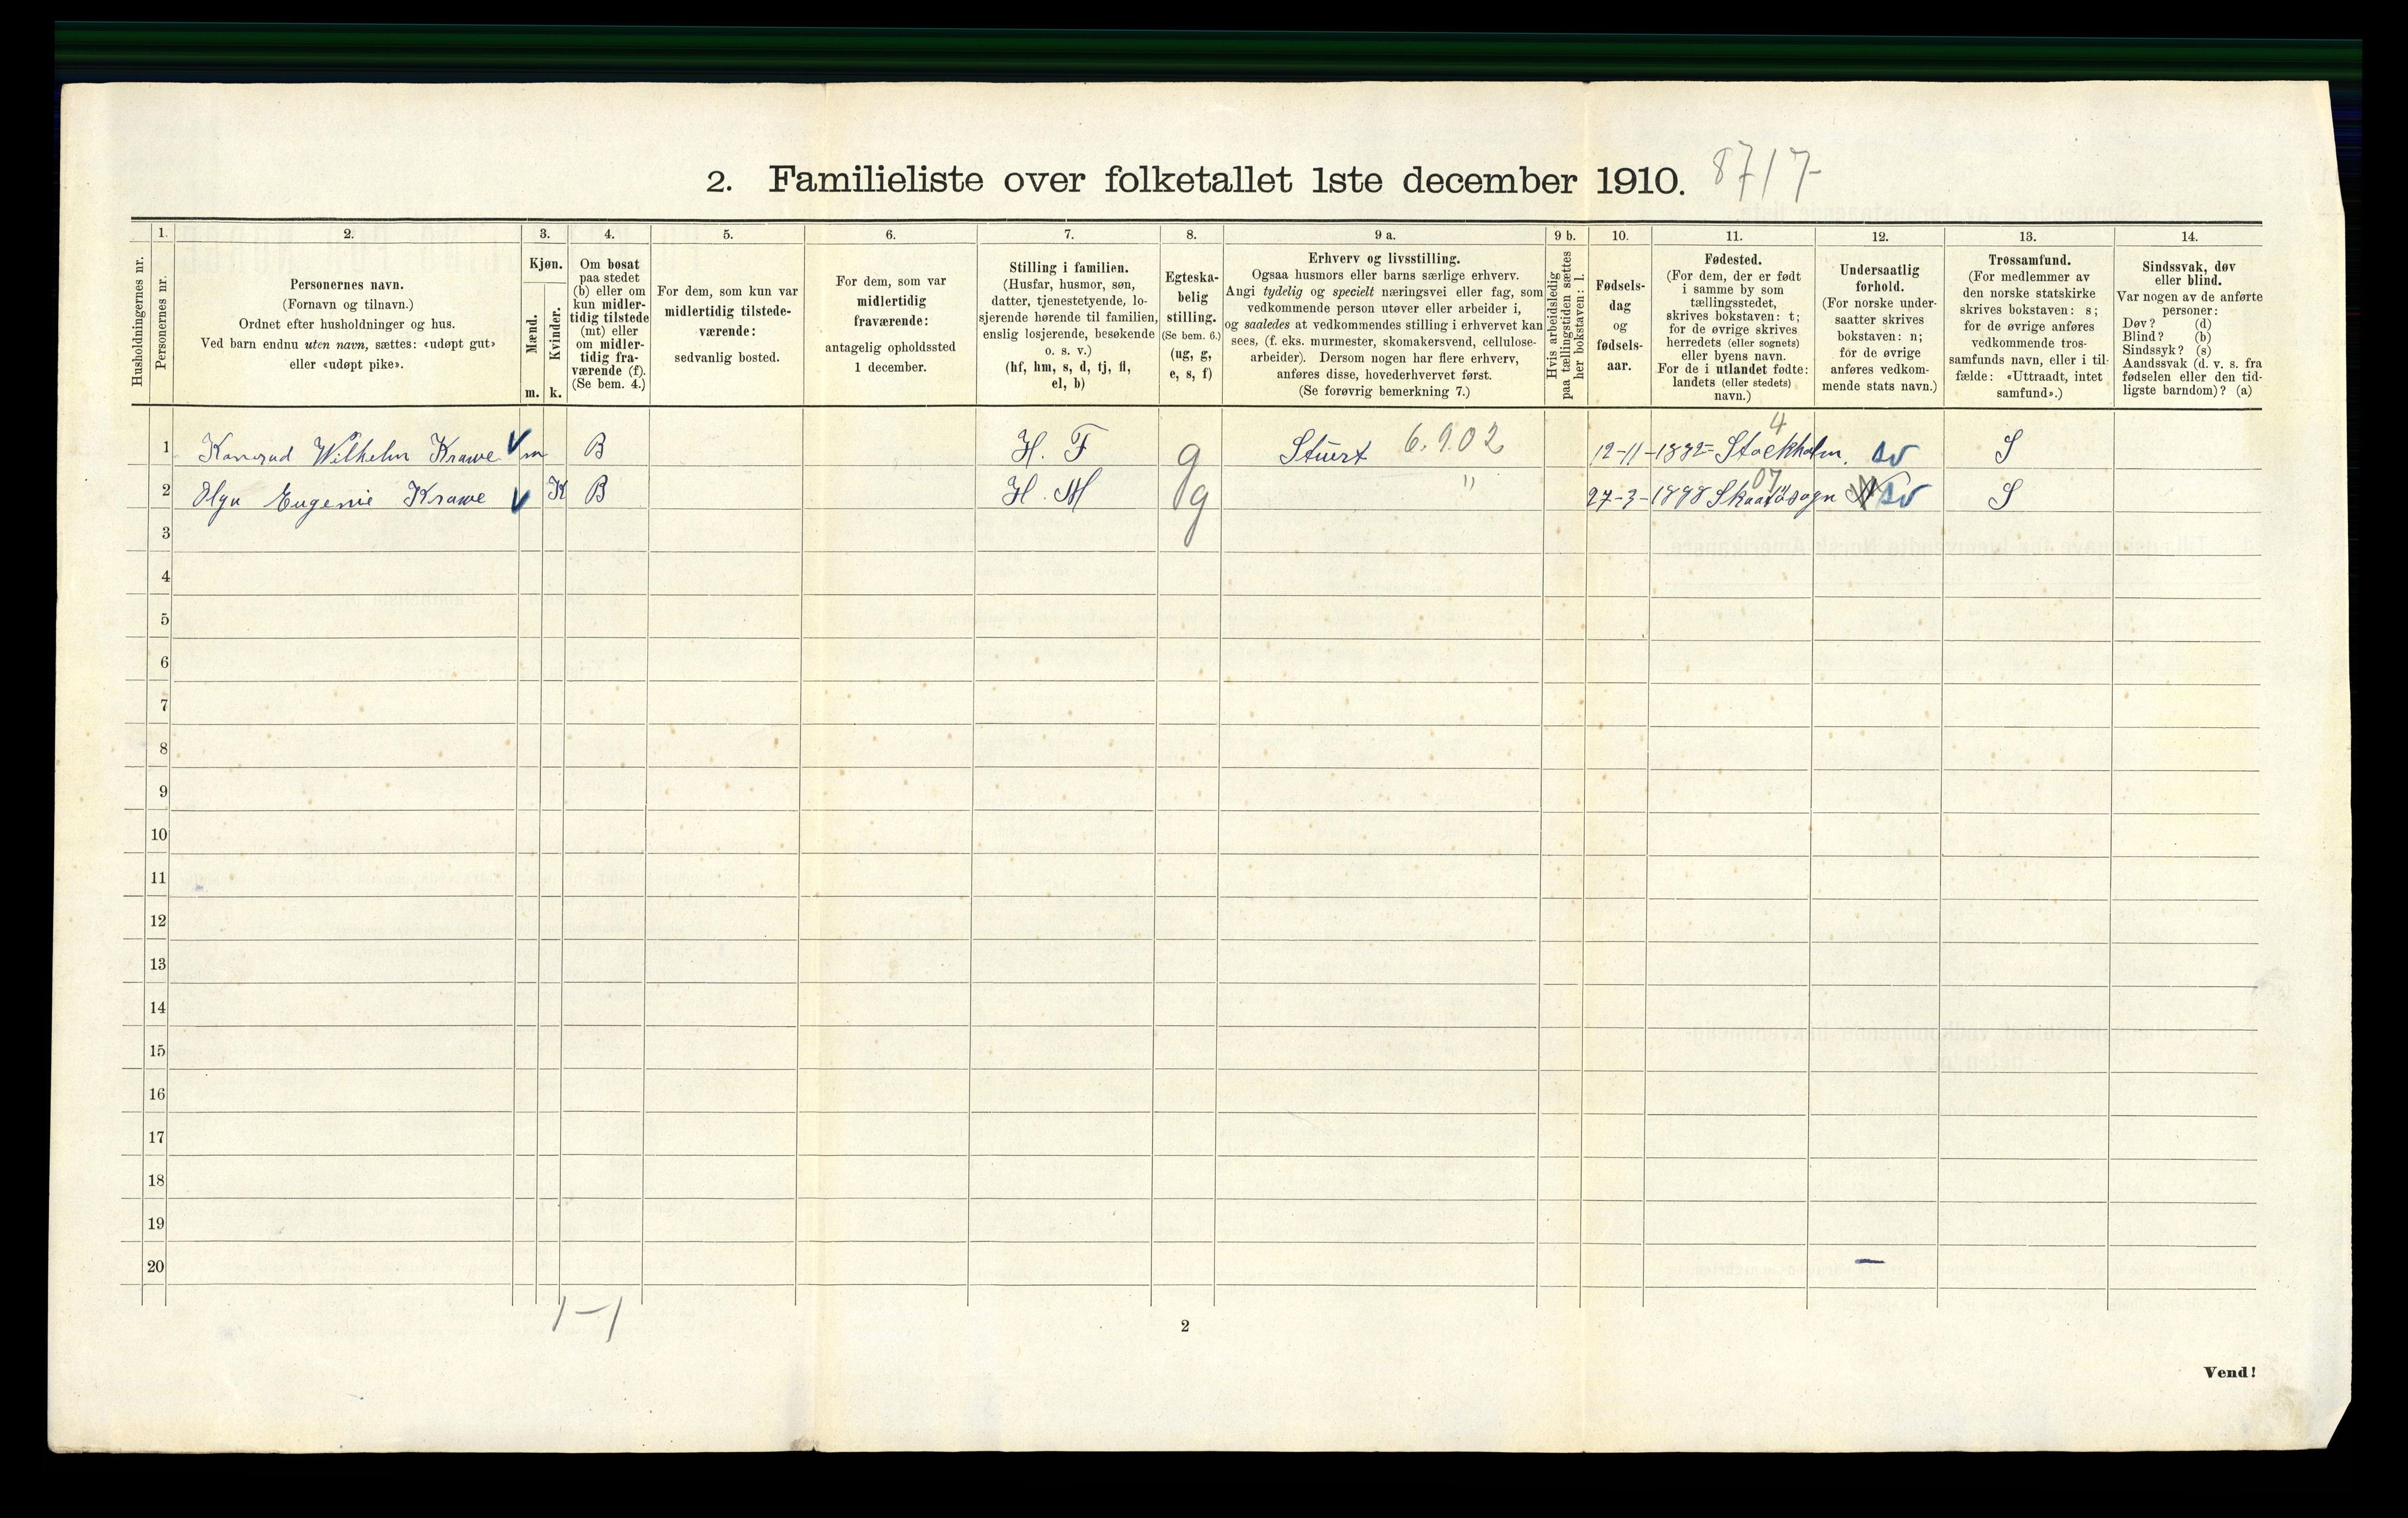 2. Familieliste over folketallet 1ste december 1910. 8717
Husholdningernes nr.
1.
Personernes nr.
2.
Personernes navn.
(Fornavn og tilnavn.)
Ordnet efter husholdninger og hus.
Ved barn endnu uten navn, sættes: «udøpt gut»
eller «udøpt pike».
3.
Kjøn.
Mænd.
Kvinder.
m. k.
4.
Om bosat
paa stedet
(b) eller om
kun midler-
tidig tilstede
(mt) eller
om midler-
tidig fra-
værende (f).
(Se bem. 4.)
5.
For dem, som kun var
midlertidig tilstede-
værende:
sedvanlig bosted.
6.
For dem, som var
midlertidig
fraværende:
antagelig opholdssted
1 december.
7.
Stilling i familien.
(Husfar, husmor, søn,
datter, tjenestetyende, lo-
sjerende hørende til familien,
enslig losjerende, besøkende
o. s. v.)
(hf, hm, s, d, tj, fl,
el, b)
8.
Egteska-
belig
stilling.
(Se bem. 6.)
(ug, g,
e, s, f)
9 a.
Erhverv og livsstilling.
Ogsaa husmors eller barns særlige erhverv.
Angi tydelig og specielt næringsvei eller fag, som
vedkommende person utøver eller arbeider i,
og saaledes at vedkommendes stilling i erhvervet kan
sees, (f. eks. murmester, skomakersvend, cellulose-
arbeider). Dersom nogen har flere erhverv,
anføres disse, hovederhvervet først.
(Se forøvrig bemerkning 7.)
9 b.
Hvis arbeidsledig
paa tællingstiden sættes
her bokstaven: l.
10.
Fødsels-
dag
og
fødsels-
aar.
11.
Fødested.
(For dem, der er født
i samme by som
tællingsstedet,
skrives bokstaven: t;
for de øvrige skrives
herredets (eller sognets)
eller byens navn.
For de i utlandet fødte:
landets (eller stedets)
navn.)
12.
Undersaatlig
forhold.
(For norske under-
saatter skrives
bokstaven: n;
for de øvrige
anføres vedkom-
mende stats navn.)
13.
Trossamfund.
(For medlemmer av
den norske statskirke
skrives bokstaven: s;
for de øvrige anføres
vedkommende tros-
samfunds navn, eller i til-
fælde: «Uttraadt, intet
samfund».)
14.
Sindssvak, døv
eller blind.
Var nogen av de anførte
personer:
Døv? (d)
Blind? (b)
Sindssyk? (s)
Aandssvak (d. v. s. fra
fødselen eller den tid-
ligste barndom)? (a)
1 Konrad Wilhelm Krawe V m B H. F g Stuert 6.9.02 12-11-1882 Stockholm. 4 sv S
2 Olga Eugenie Krawe V K B H. M g " 27-3- Skaatøsogn 07 N sv S
3
4
5
6
7
8
9
10
11
12
13
14
15
16
17
18
19
20
1-1
2
Vend!